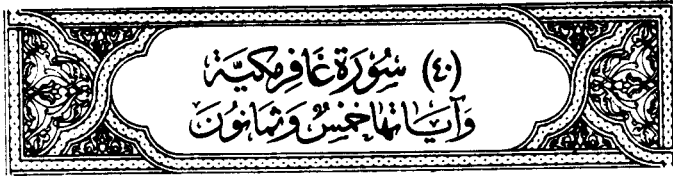 (٤٠) سُوْرَةُ غَافِرٍ مَكِّيَّة
وَآيَاتُهَا خَمْسٌ وَثَمَانُونَ